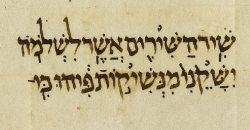 שִׁיר הַשִּׁירִים אֲשֶׁר לִשְׁלֹמֹה
יִשָּׁקֵנִי מִנְּשִׁיקוֹת פִּיהוּ כִּי